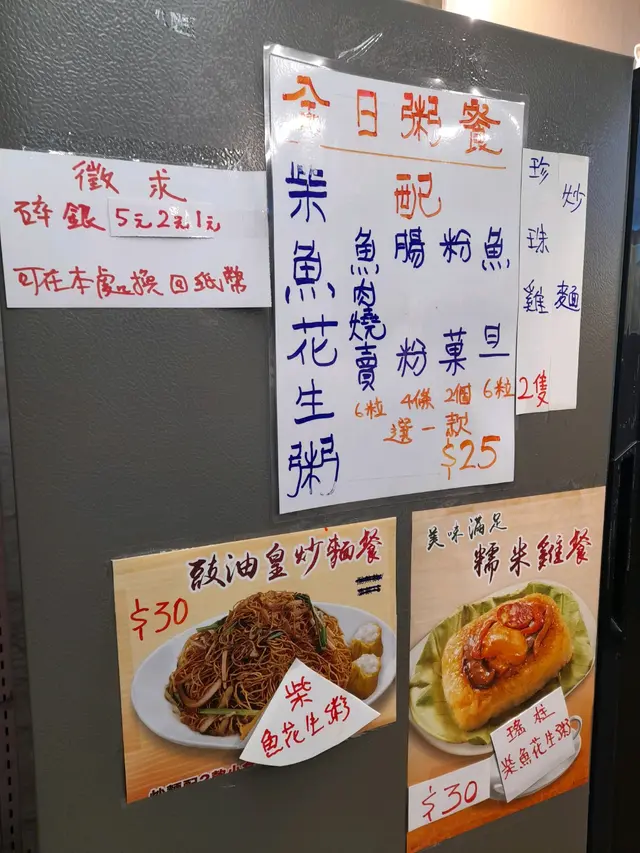 徵求
碎銀 5元2元1元
可在本處換回紙幣
全日粥餐
柴魚花生粥
配
魚肉燒賣 6粒
腸粉 4條
粉菓 2個
魚旦 6粒
選一款
$25
珍珠雞 2隻
炒麵
豉油皇炒麵餐
$30
柴
魚花生粥
美味滿足
糯米雞餐
瑤柱
柴魚花生粥
$30